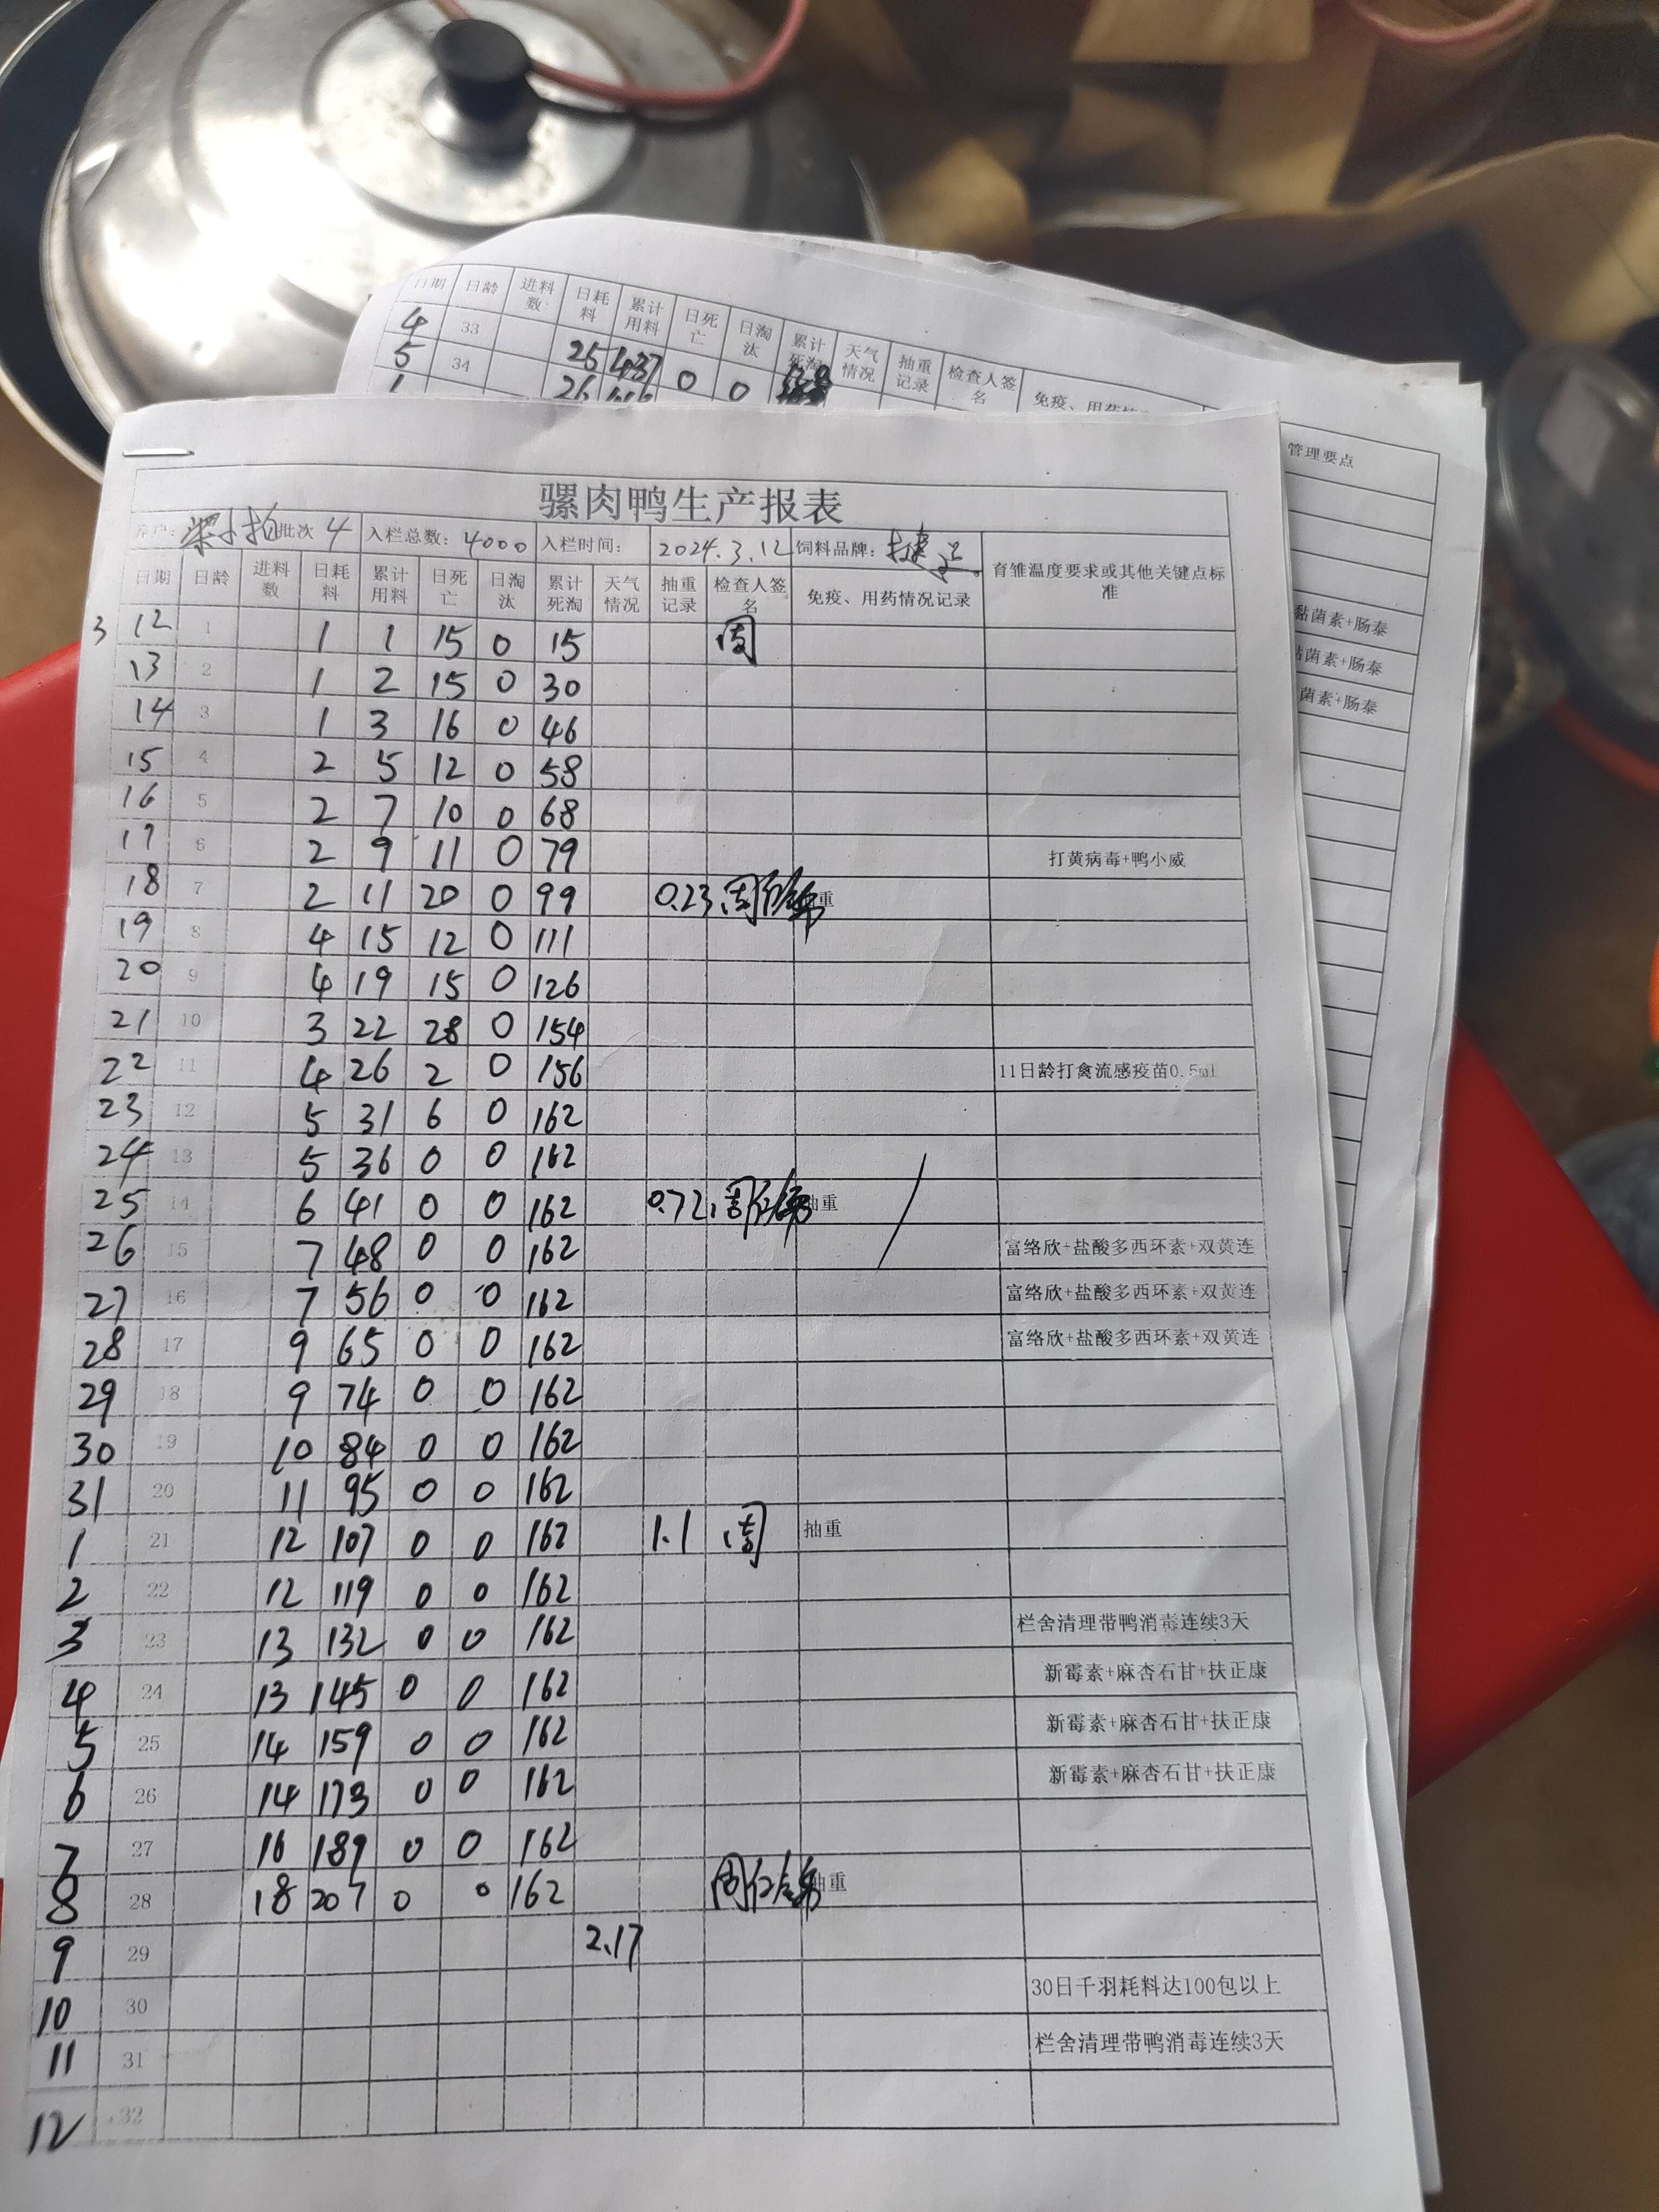 日期 日龄 进料数 日耗料 累计用料 日死亡 日淘汰 累计死淘 天气情况 抽重记录 检查人签名 免疫、用药情
4 33 25 1437 0 0
5 34 26
1
管理要点
黏菌素+肠泰
菌素+肠泰
菌素+肠泰
骡肉鸭生产报表
养户: 梁小柏 批次 4 入栏总数: 4000 入栏时间: 2024.3.12 饲料品牌:
日期 日龄 进料数 日耗料 累计用料 日死亡 日淘汰 累计死淘 天气情况 抽重记录 检查人签名 免疫、用药情况记录 育雏温度要求或其他关键点标准
3 12 1 1 1 15 0 15 周
13 2 1 2 15 0 30
14 3 1 3 16 0 46
15 4 2 5 12 0 58
16 5 2 7 10 0 68
17 6 2 9 11 0 79 打黄病毒+鸭小威
18 7 2 11 20 0 99 0.23 周 重
19 8 4 15 12 0 111
20 9 4 19 15 0 126
21 10 3 22 28 0 154
22 11 4 26 2 0 156 11日龄打禽流感疫苗0.5ml
23 12 5 31 6 0 162
24 13 5 36 0 0 162
25 14 6 41 0 0 162 0.72 周 抽重
26 15 7 48 0 0 162 富络欣+盐酸多西环素+双黄连
27 16 7 56 0 0 162 富络欣+盐酸多西环素+双黄连
28 17 9 65 0 0 162 富络欣+盐酸多西环素+双黄连
29 18 9 74 0 0 162
30 19 10 84 0 0 162
31 20 11 95 0 0 162
1 21 12 107 0 0 162 1.1 周 抽重
2 22 12 119 0 0 162
3 23 13 132 0 0 162 栏舍清理带鸭消毒连续3天
4 24 13 145 0 0 162 新霉素+麻杏石甘+扶正康
5 25 14 159 0 0 162 新霉素+麻杏石甘+扶正康
6 26 14 173 0 0 162 新霉素+麻杏石甘+扶正康
7 27 16 189 0 0 162
8 28 18 207 0 0 162 周 抽重
9 29 2.17
10 30 30日千羽耗料达100包以上
11 31 栏舍清理带鸭消毒连续3天
12 32